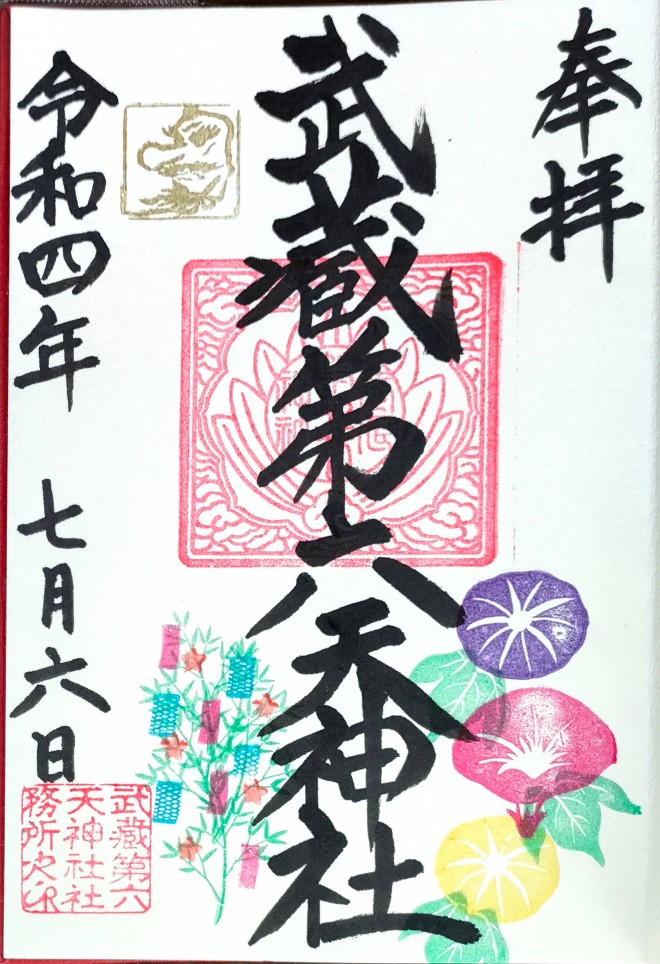 奉拝
武蔵第六天神社
令和四年 七月六日
武蔵第六
天神社社
務所之印